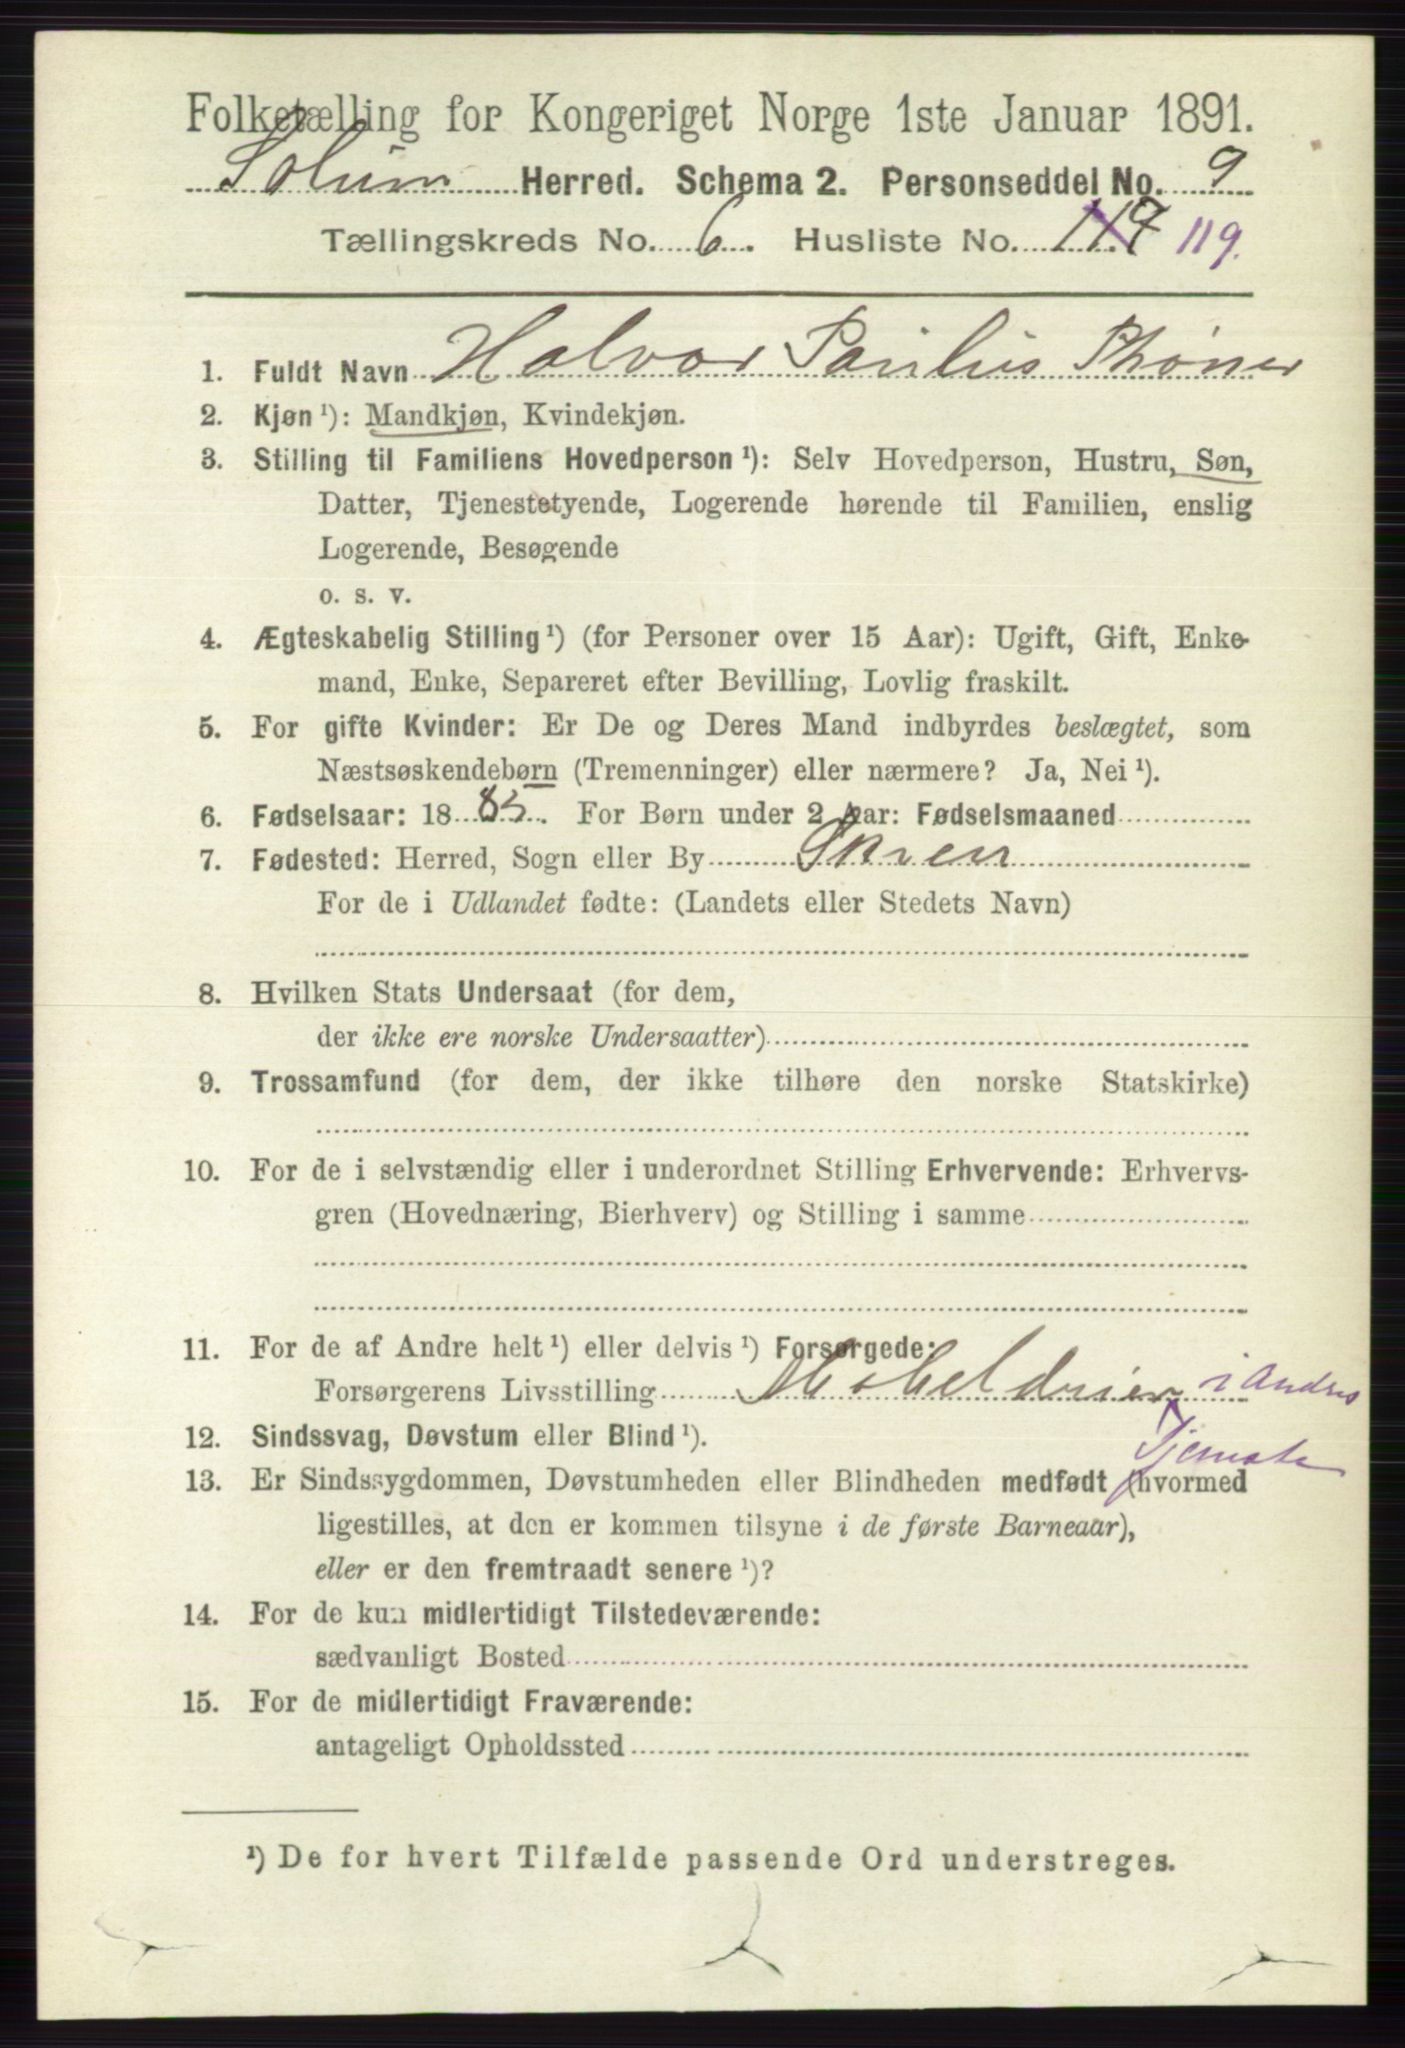 Folketælling for Kongeriget Norge 1ste Januar 1891.
Solum Herred. Schema 2. Personseddel No. 9
Tællingskreds No. 6. Husliste No. 119.
1. Fuldt Navn Halvor Paulius Thøner
2. Kjøn ¹): Mandkjøn, Kvindekjøn.
3. Stilling til Familiens Hovedperson ¹): Selv Hovedperson, Hustru, Søn,
Datter, Tjenestetyende, Logerende hørende til Familien, enslig
Logerende, Besøgende
o. s. v.
4. Ægteskabelig Stilling ¹) (for Personer over 15 Aar): Ugift, Gift, Enke-
mand, Enke, Separeret efter Bevilling, Lovlig fraskilt.
5. For gifte Kvinder: Er De og Deres Mand indbyrdes beslægtet, som
Næstsøskendebørn (Tremenninger) eller nærmere? Ja, Nei ¹).
6. Fødselsaar: 1885. For Børn under 2 Aar: Fødselsmaaned
7. Fødested: Herred, Sogn eller By Skien
For de i Udlandet fødte: (Landets eller Stedets Navn)
8. Hvilken Stats Undersaat (for dem,
der ikke ere norske Undersaatter)
9. Trossamfund (for dem, der ikke tilhøre den norske Statskirke)
10. For de i selvstændig eller i underordnet Stilling Erhvervende: Erhvervs-
gren (Hovednæring, Bierhverv) og Stilling i samme
11. For de af Andre helt ¹) eller delvis ¹) Forsørgede:
Forsørgerens Livsstilling i Andres
Tjeneste
12. Sindssvag, Døvstum eller Blind ¹).
13. Er Sindssygdommen, Døvstumheden eller Blindheden medfødt (hvormed
ligestilles, at den er kommen tilsyne i de første Barneaar),
eller er den fremtraadt senere ¹)?
14. For de kun midlertidigt Tilstedeværende:
sædvanligt Bosted
15. For de midlertidigt Fraværende:
antageligt Opholdssted
¹) De for hvert Tilfælde passende Ord understreges.